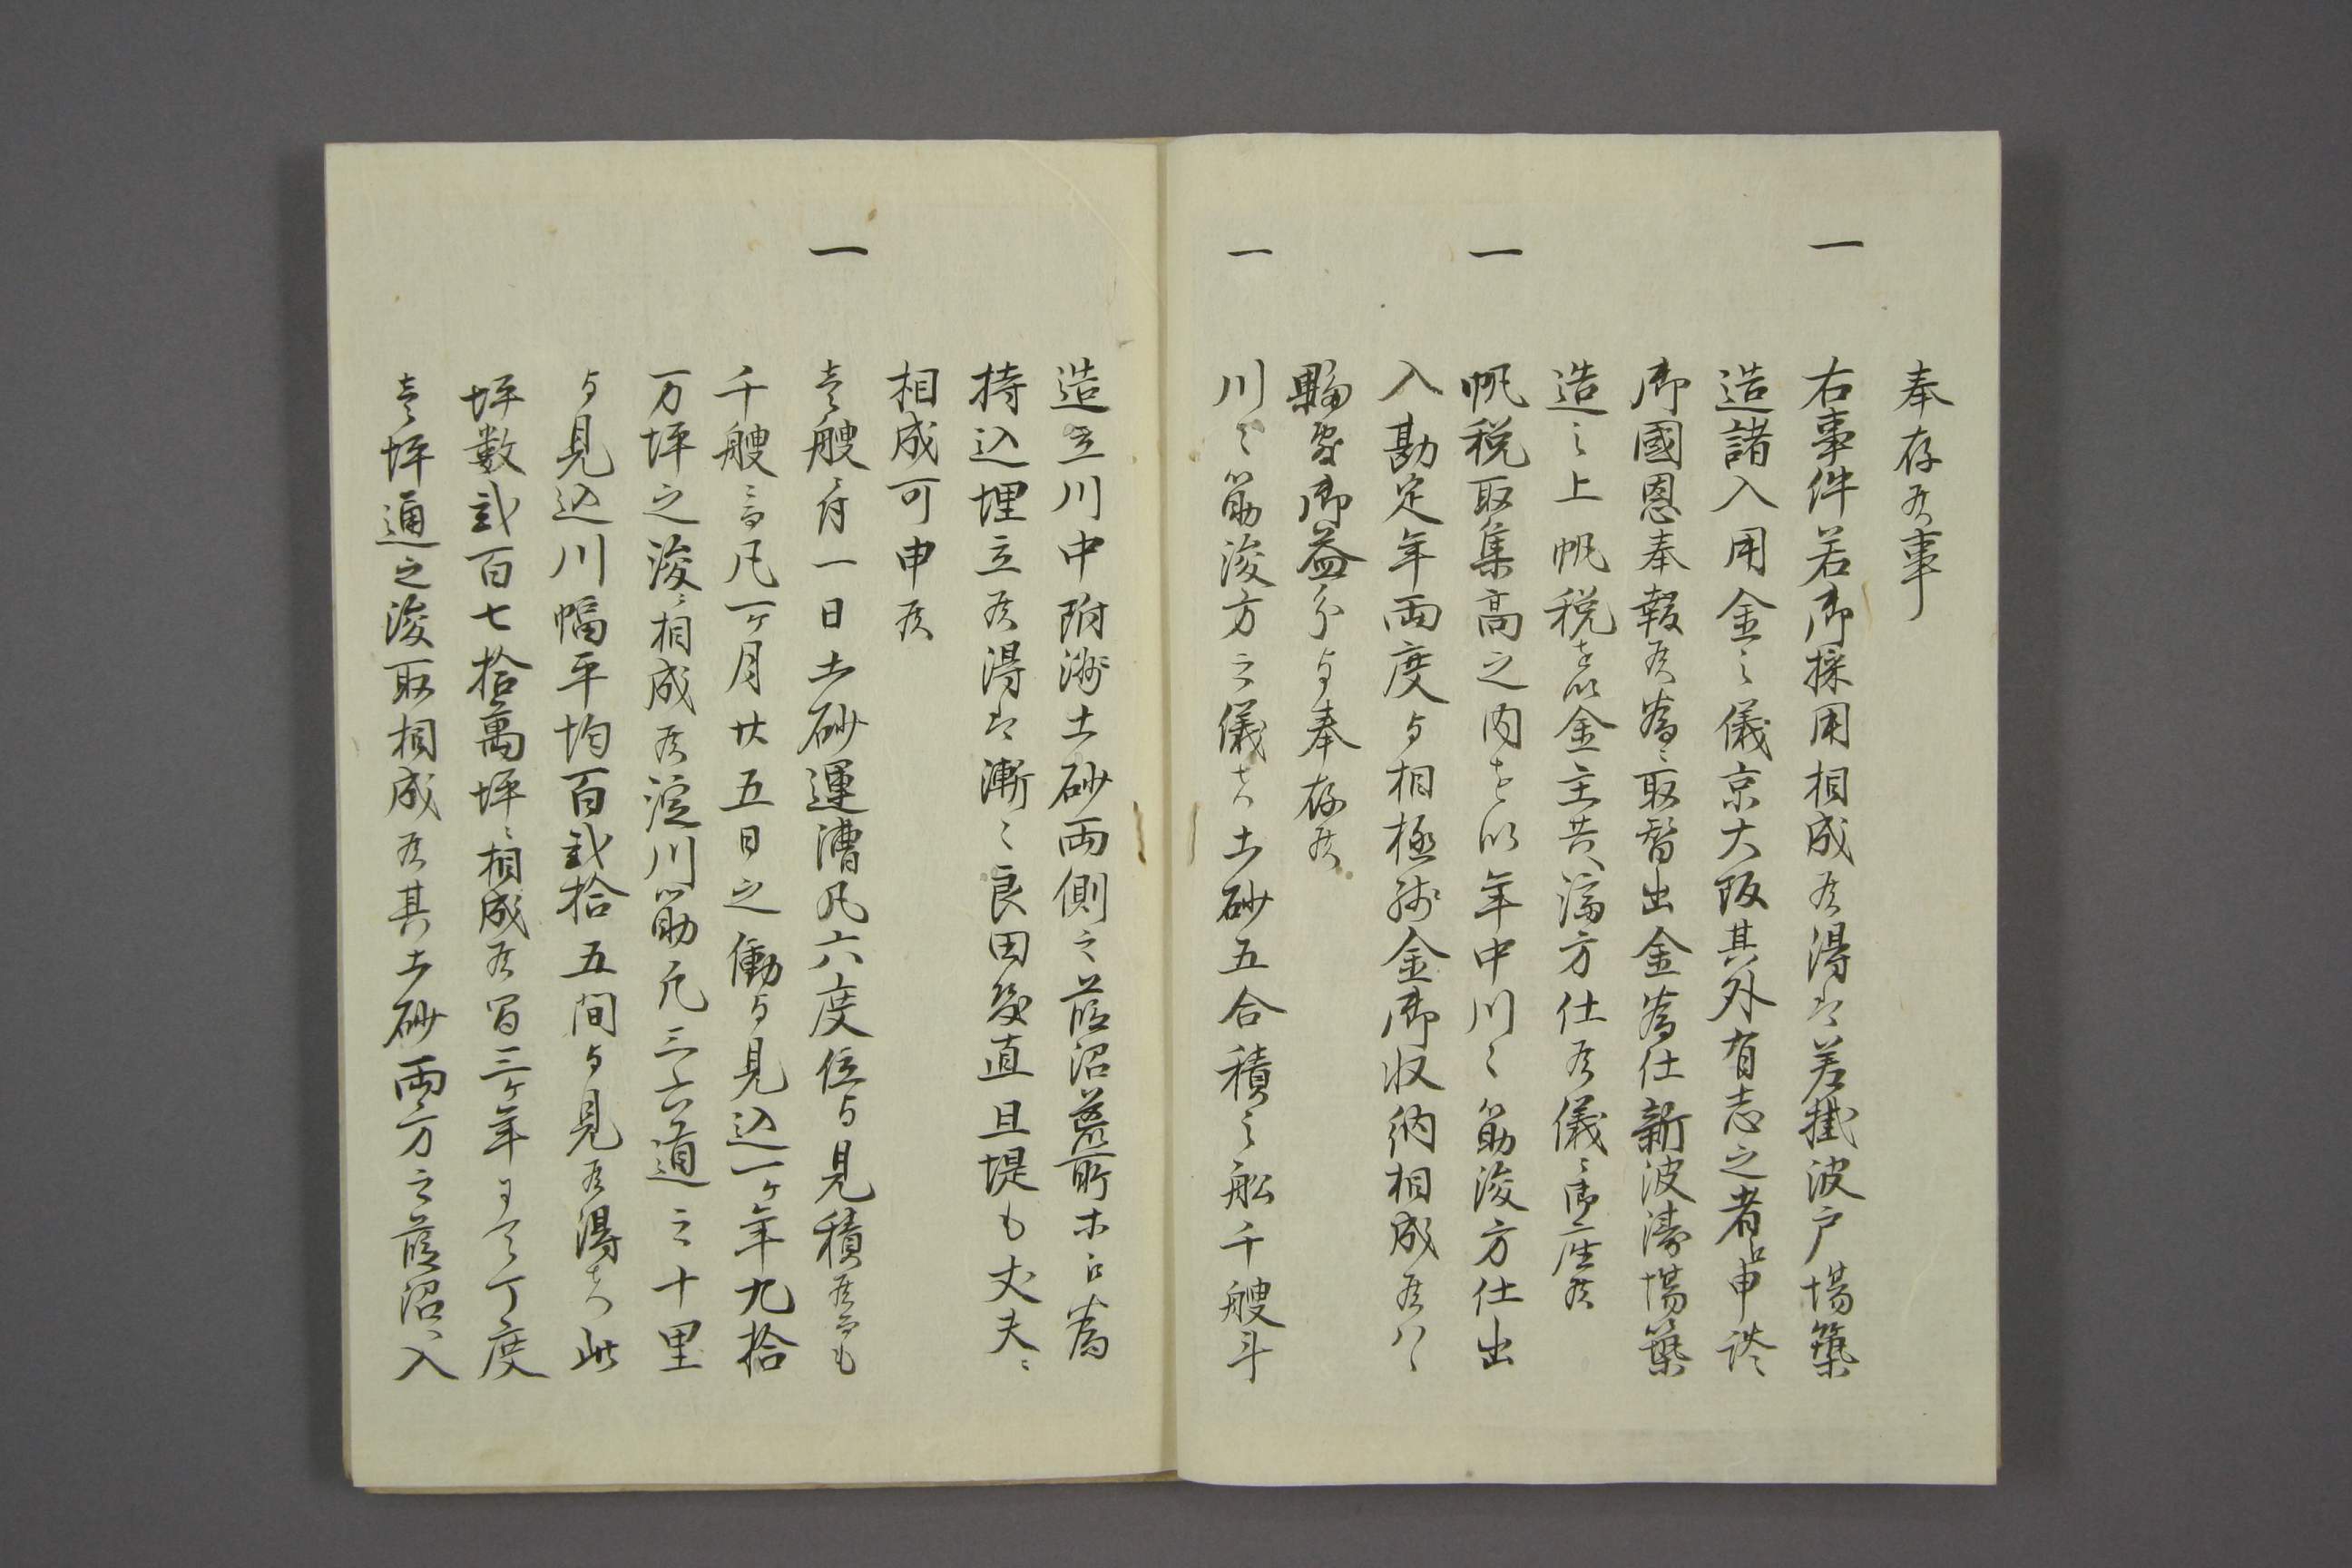 奉存候事
一 右事件若御採用相成候得は差掛波戸場築
造諸入用金之儀京大阪其外有志之者申談
御國恩奉報候為ニ取替出金為仕新波濤場築
造之上帆税を以金主共へ済方仕候儀ニ御座候
一 帆税取集高之内を以年中川々筋浚方仕出
入勘定年両度与相極残金御収納相成候ハヽ
御益分与奉存候
一 川々筋浚方之儀は土砂五合積之舩千艘斗
造立川中附洲土砂両側之葭沼荒所ホ江為
持込埋立候得は漸々良田変直且堤も丈夫ニ
相成可申候
一 壱艘ニ付一日土砂運漕凡六度位与見積候而も
千艘ニ而凡一ヶ月廿五日之働与見込一ヶ年九拾
万坪之浚ニ相成候淀川筋凡三六道之十里
与見込川幅平均百弐拾五間与見候得は此
坪数弐百七拾萬坪ニ相成候間三ヶ年ニ而丁度
壱坪通之浚取相成候其土砂両方之葭沼へ入